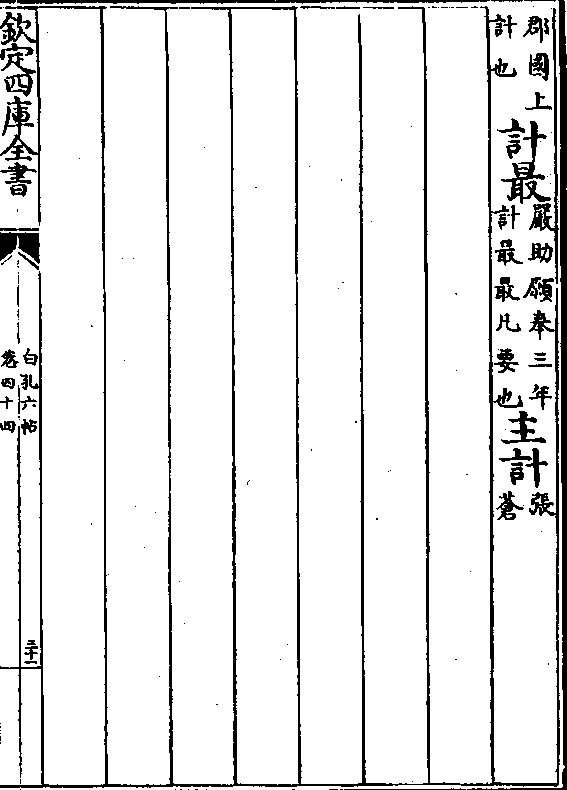 郡國上計也計最嚴助願奉三年計最最凡要也主計張蒼
欽定四庫全書
白孔六帖
卷四十四
三十一